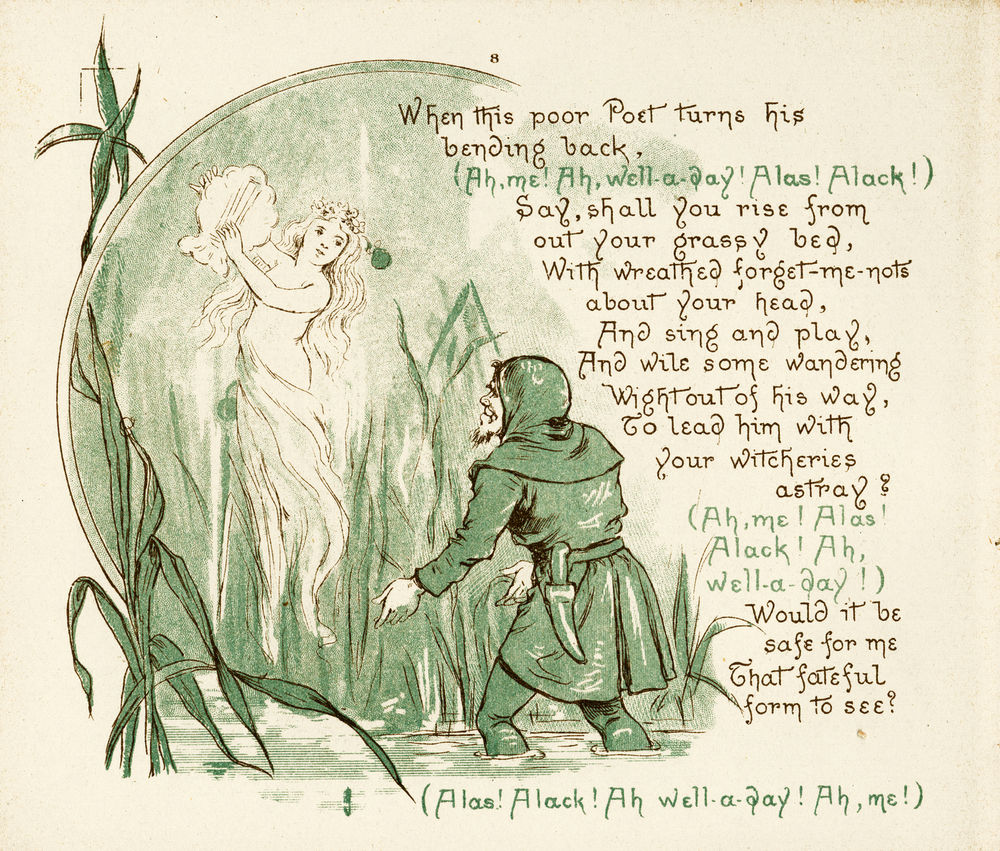 8
When this poor Poet turns his
bending back,
(Ah, me! Ah, well-a-day! Alas! Alack!)
Say, shall you rise from
out your grassy bed,
With wreathed forget-me-nots
about your head,
And sing and play,
And wile some wandering
Wight out of his way,
To lead him with
your witcheries
astray?
(Ah, me! Alas!
Alack! Ah,
well-a-day!)
Would it be
safe for me
That fateful
form to see?
(Alas! Alack! Ah well-a-day! Ah, me!)